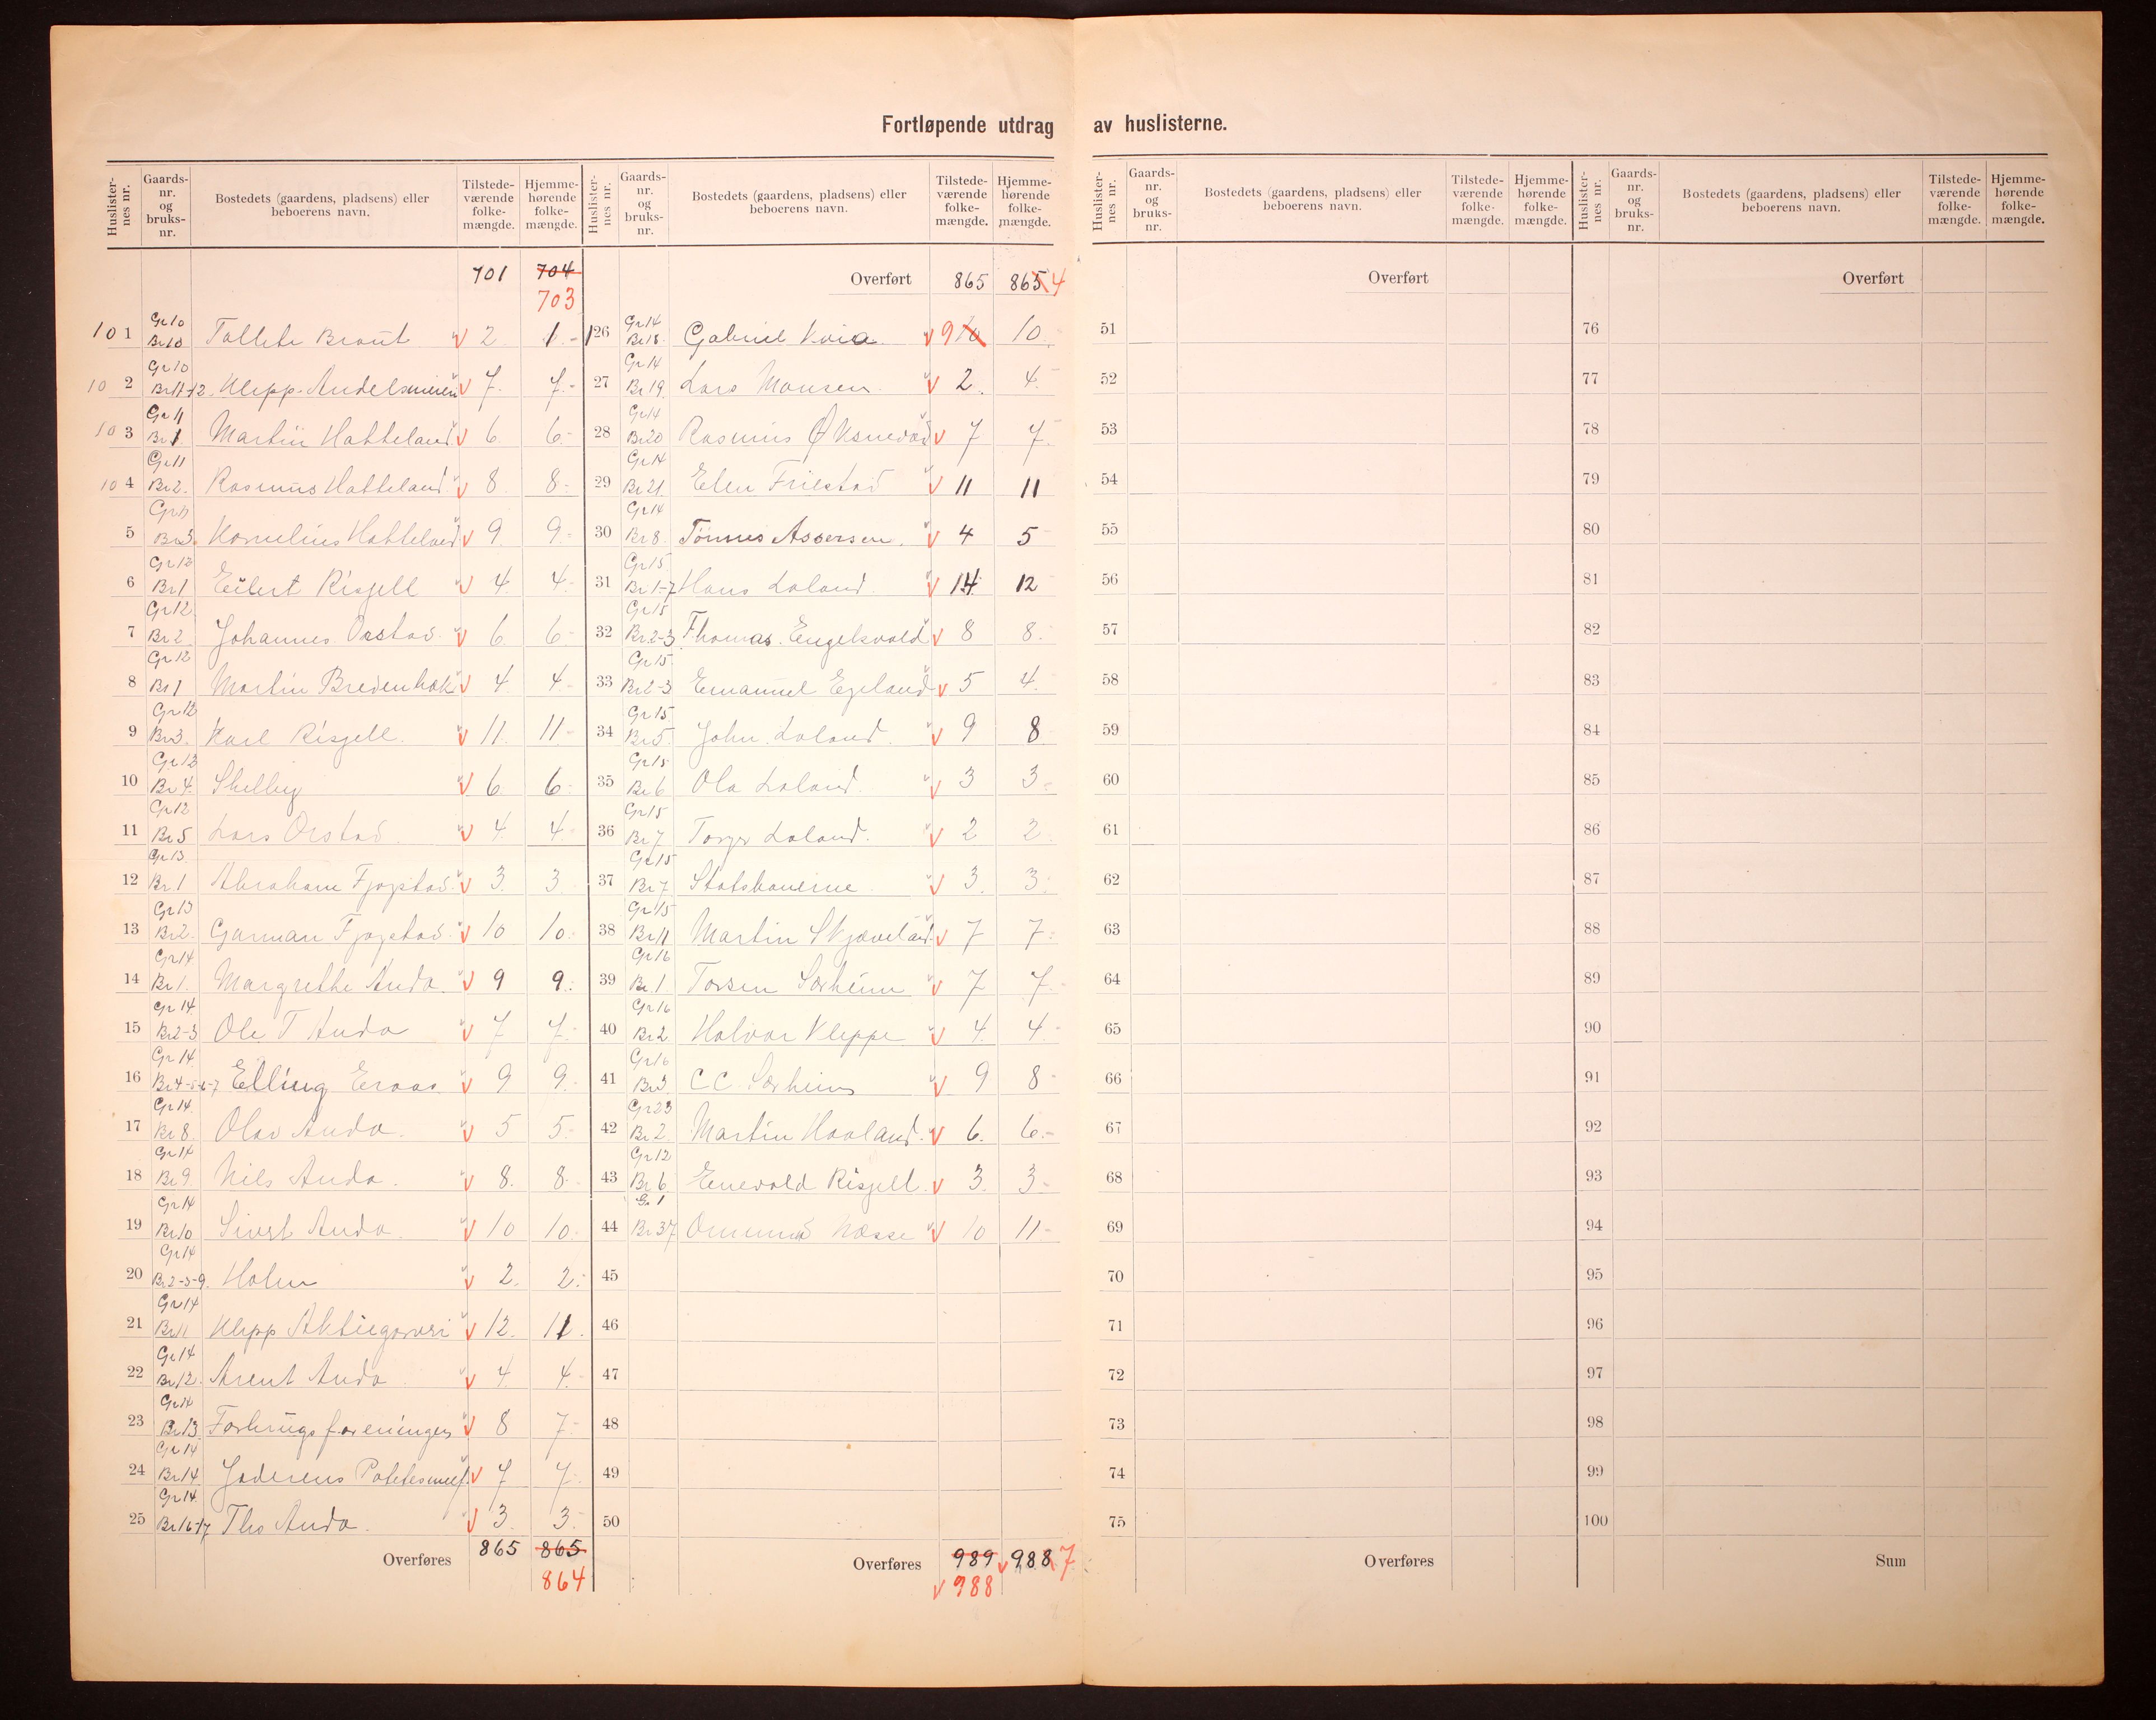 Fortløpende utdrag av huslisterne.
Huslister-nes nr. Gaards-nr. og bruks-nr. Bostedets (gaardens, pladsens) eller beboerens navn. Tilstede-værende folke-mængde. Hjemme-hørende folke-mængde.
701 704
703
10 1 Gr 10 Br 10 Tollete Braut 2 1
10 2 Gr 10 Br 11-12 Klepp Andelsmeieri 7 7
10 3 Gr 11 Br 1 Martin Hatteland 6 6
10 4 Gr 11 Br 2 Rasmus Hatteland 8 8
5 Gr 11 Br 3 Kornelius Hatteland 9 9
6 Gr 12 Br 1 Eilert Risjell 4 4
7 Gr 12 Br 2 Johannes Orstad 6 6
8 Gr 12 Br 1 Martin Bredenbæk 4 4
9 Gr 12 Br 3 Karl Risjell 11 11
10 Gr 12 Br 4 6 6
11 Gr 12 Br 5 Lars Orstad 4 4
12 Gr 13 Br 1 Abraham Fjogstad 3 3
13 Gr 13 Br 2 Garman Fjogstad 10 10
14 Gr 14 Br 1 Margrethe Anda 9 9
15 Gr 14 Br 2-3 Ole T Anda 7 7
16 Gr 14 Br 4-5-6-7 Elling 9 9
17 Gr 14 Br 8 Olav Anda 5 5
18 Gr 14 Br 9 Nils Anda 8 8
19 Gr 14 Br 10 Sivert Anda 10 10
20 Gr 14 Br 2-3-9 Holm 2 2
21 Gr 14 Br 11 Klepp Aktiegarveri 12 11
22 Gr 14 Br 12 Arent Anda 4 4
23 Gr 14 Br 13 Forbrugsforeningen 8 7
24 Gr 14 Br 14 Jæderens 7 7
25 Gr 14 Br 16-17 Ths Anda 3 3
Overføres 865 865
864
Huslister-nes nr. Gaards-nr. og bruks-nr. Bostedets (gaardens, pladsens) eller beboerens navn. Tilstede-værende folke-mængde. Hjemme-hørende folke-mængde.
Overført 865 865 4
126 Gr 14 Br 18 Gabriel 9 10 10
27 Gr 14 Br 19 Lars Monsen 2 4
28 Gr 14 Br 20 Rasmus Øksnevad 7 7
29 Gr 14 Br 21 Ellen Friestad 11 11
30 Gr 14 Br 8 Tønnes Assersen 4 5
31 Gr 15 Br 1-7 Hans Laland 14 12
32 Gr 15 Br 2-3 Thomas Engelsvold 8 8
33 Gr 15 Br 2-3 Emanuel Egeland 5 4
34 Gr 15 Br 5 John Laland 9 8
35 Gr 15 Br 6 Ola Laland 3 3
36 Gr 15 Br 7 Torger Laland 2 2
37 Gr 15 Br 7 Statsbanerne 3 3
38 Gr 15 Br 11 Martin Skjæveland 7 7
39 Gr 16 Br 1 Torsen Særheim 7 7
40 Gr 16 Br 2 Halvor Kleppe 4 4
41 Gr 16 Br 3 C C Særheim 9 8
42 Gr 23 Br 2 Martin Haaland 6 6
43 Gr 12 Br 6 Enevald Risjell 3 3
44 G. 1 Br 37 Ommund Næsse 10 11
45
46
47
48
49
50
Overføres 989 988 7
988
Huslister-nes nr. Gaards-nr. og bruks-nr. Bostedets (gaardens, pladsens) eller beboerens navn. Tilstede-værende folke-mængde. Hjemme-hørende folke-mængde.
Overført
51
52
53
54
55
56
57
58
59
60
61
62
63
64
65
66
67
68
69
70
71
72
73
74
75
Overføres
Huslister-nes nr. Gaards-nr. og bruks-nr. Bostedets (gaardens, pladsens) eller beboerens navn. Tilstede-værende folke-mængde. Hjemme-hørende folke-mængde.
Overført
76
77
78
79
80
81
82
83
84
85
86
87
88
89
90
91
92
93
94
95
96
97
98
99
100
Sum